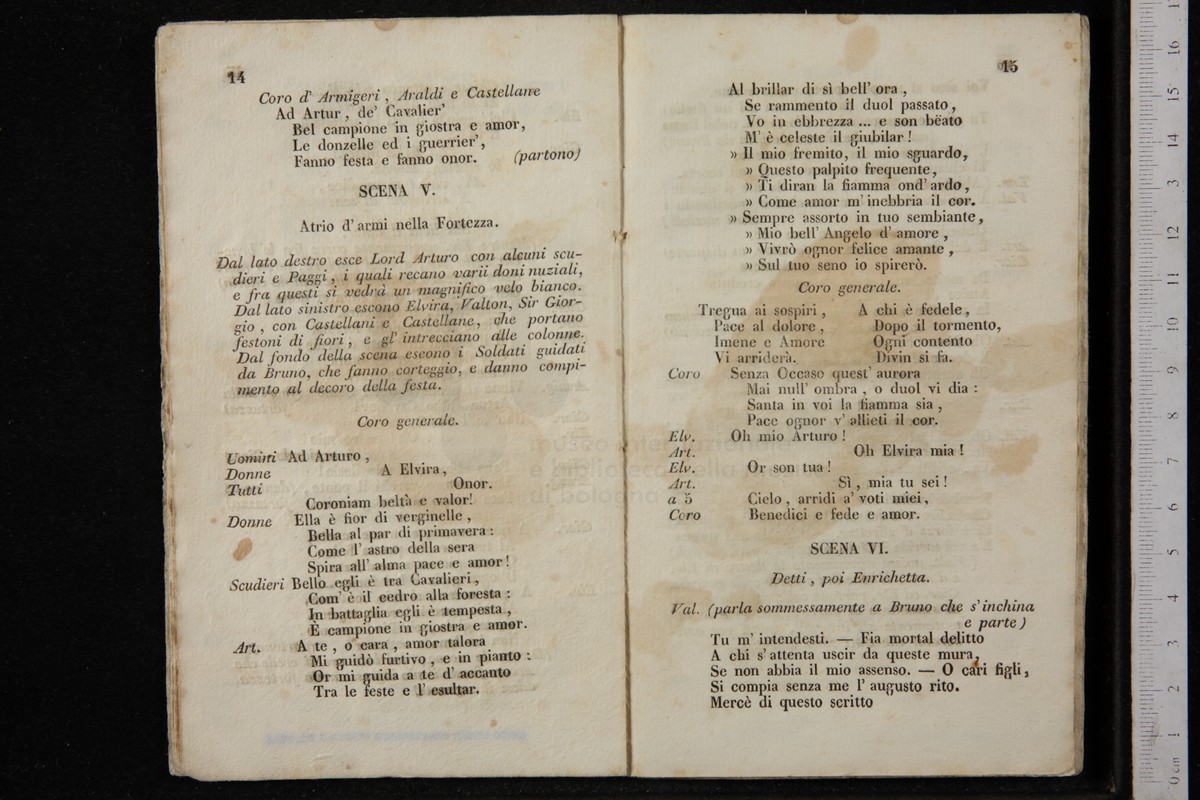 14
Coro d' Armigeri, Araldi e Castellane
Ad Artur, de' Cavalier'
Bel campione in giostra e amor,
Le donzelle ed i guerrier',
Fanno festa e fanno onor. (partono)
SCENA V.
Atrio d'armi nella Fortezza.
Dal lato destro esce Lord Arturo con alcuni scu-
dieri e Paggi, i quali recano varii doni nuziali,
e fra questi si vedrà un magnifico velo bianco.
Dal lato sinistro escono Elvira, Valton, Sir Gior-
gio, con Castellani e Castellane, che portano
festoni di fiori, e gl' intrecciano alle colonne.
Dal fondo della scena escono i Soldati guidati
da Bruno, che fanno corteggio, e danno compi-
mento al decoro della festa.
Coro generale.
Uomini Ad Arturo,
Donne A Elvira,
Tutti Onor.
Coroniam beltà e valor!
Donne Ella è fior di verginelle,
Bella al par di primavera:
Come l' astro della sera
Spira all' alma pace e amor!
Scudieri Bello egli è tra Cavalieri,
Com' è il cedro alla foresta:
In battaglia egli è tempesta,
È campione in giostra e amor.
Art. A te, o cara, amor talora
Mi guidò furtivo, e in pianto:
Or mi guida a te d' accanto
Tra le feste e l' esultar.
15
Al brillar di sì bell' ora,
Se rammento il duol passato,
Vo in ebbrezza ... e son bëato
M' è celeste il giubilar!
» Il mio fremito, il mio sguardo,
» Questo palpito frequente,
» Ti diran la fiamma ond' ardo,
» Come amor m' inebbria il cor.
» Sempre assorto in tuo sembiante,
» Mio bell' Angelo d' amore,
» Vivrò ognor felice amante,
» Sul tuo seno io spirerò.
Coro generale.
Tregua ai sospiri, A chi è fedele,
Pace al dolore, Dopo il tormento,
Imene e Amore Ogni contento
Vi arriderà. Divin si fa.
Coro Senza Occaso quest' aurora
Mai null' ombra, o duol vi dia:
Santa in voi la fiamma sia,
Pace ognor v' allieti il cor.
Elv. Oh mio Arturo!
Art. Oh Elvira mia!
Elv. Or son tua!
Art. Sì, mia tu sei!
a 5 Cielo, arridi a' voti miei,
Coro Benedici e fede e amor.
SCENA VI.
Detti, poi Enrichetta.
Val. (parla sommessamente a Bruno che s' inchina
e parte)
Tu m' intendesti. — Fia mortal delitto
A chi s' attenta uscir da queste mura,
Se non abbia il mio assenso. — O cari figli,
Si compia senza me l' augusto rito.
Mercè di questo scritto
museo internazionale
e biblioteca della musica
di bologna
0 cm 1 2 3 4 5 6 7 8 9 10 11 12 13 14 15 16